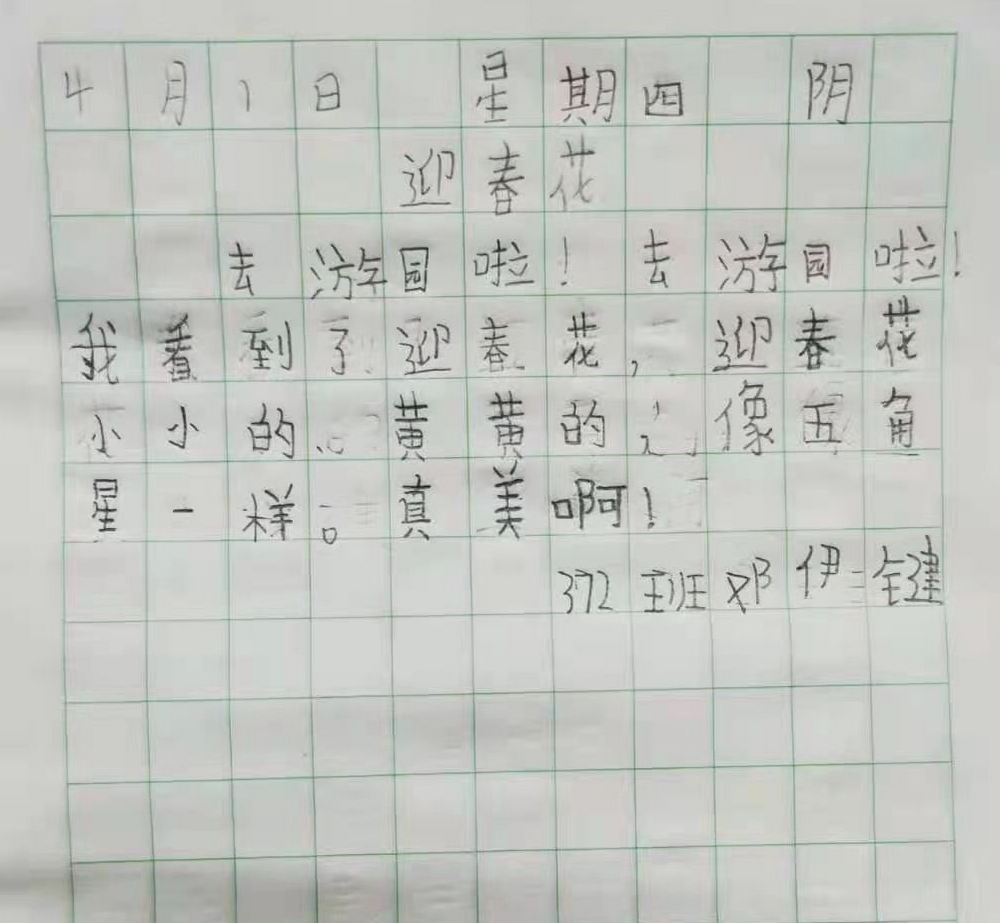 4月1日 星期四 阴
迎春花
去游园啦！去游园啦！
我看到了迎春花，迎春花
小小的、黄黄的，像五角
星一样。真美啊！
372班邓伊键